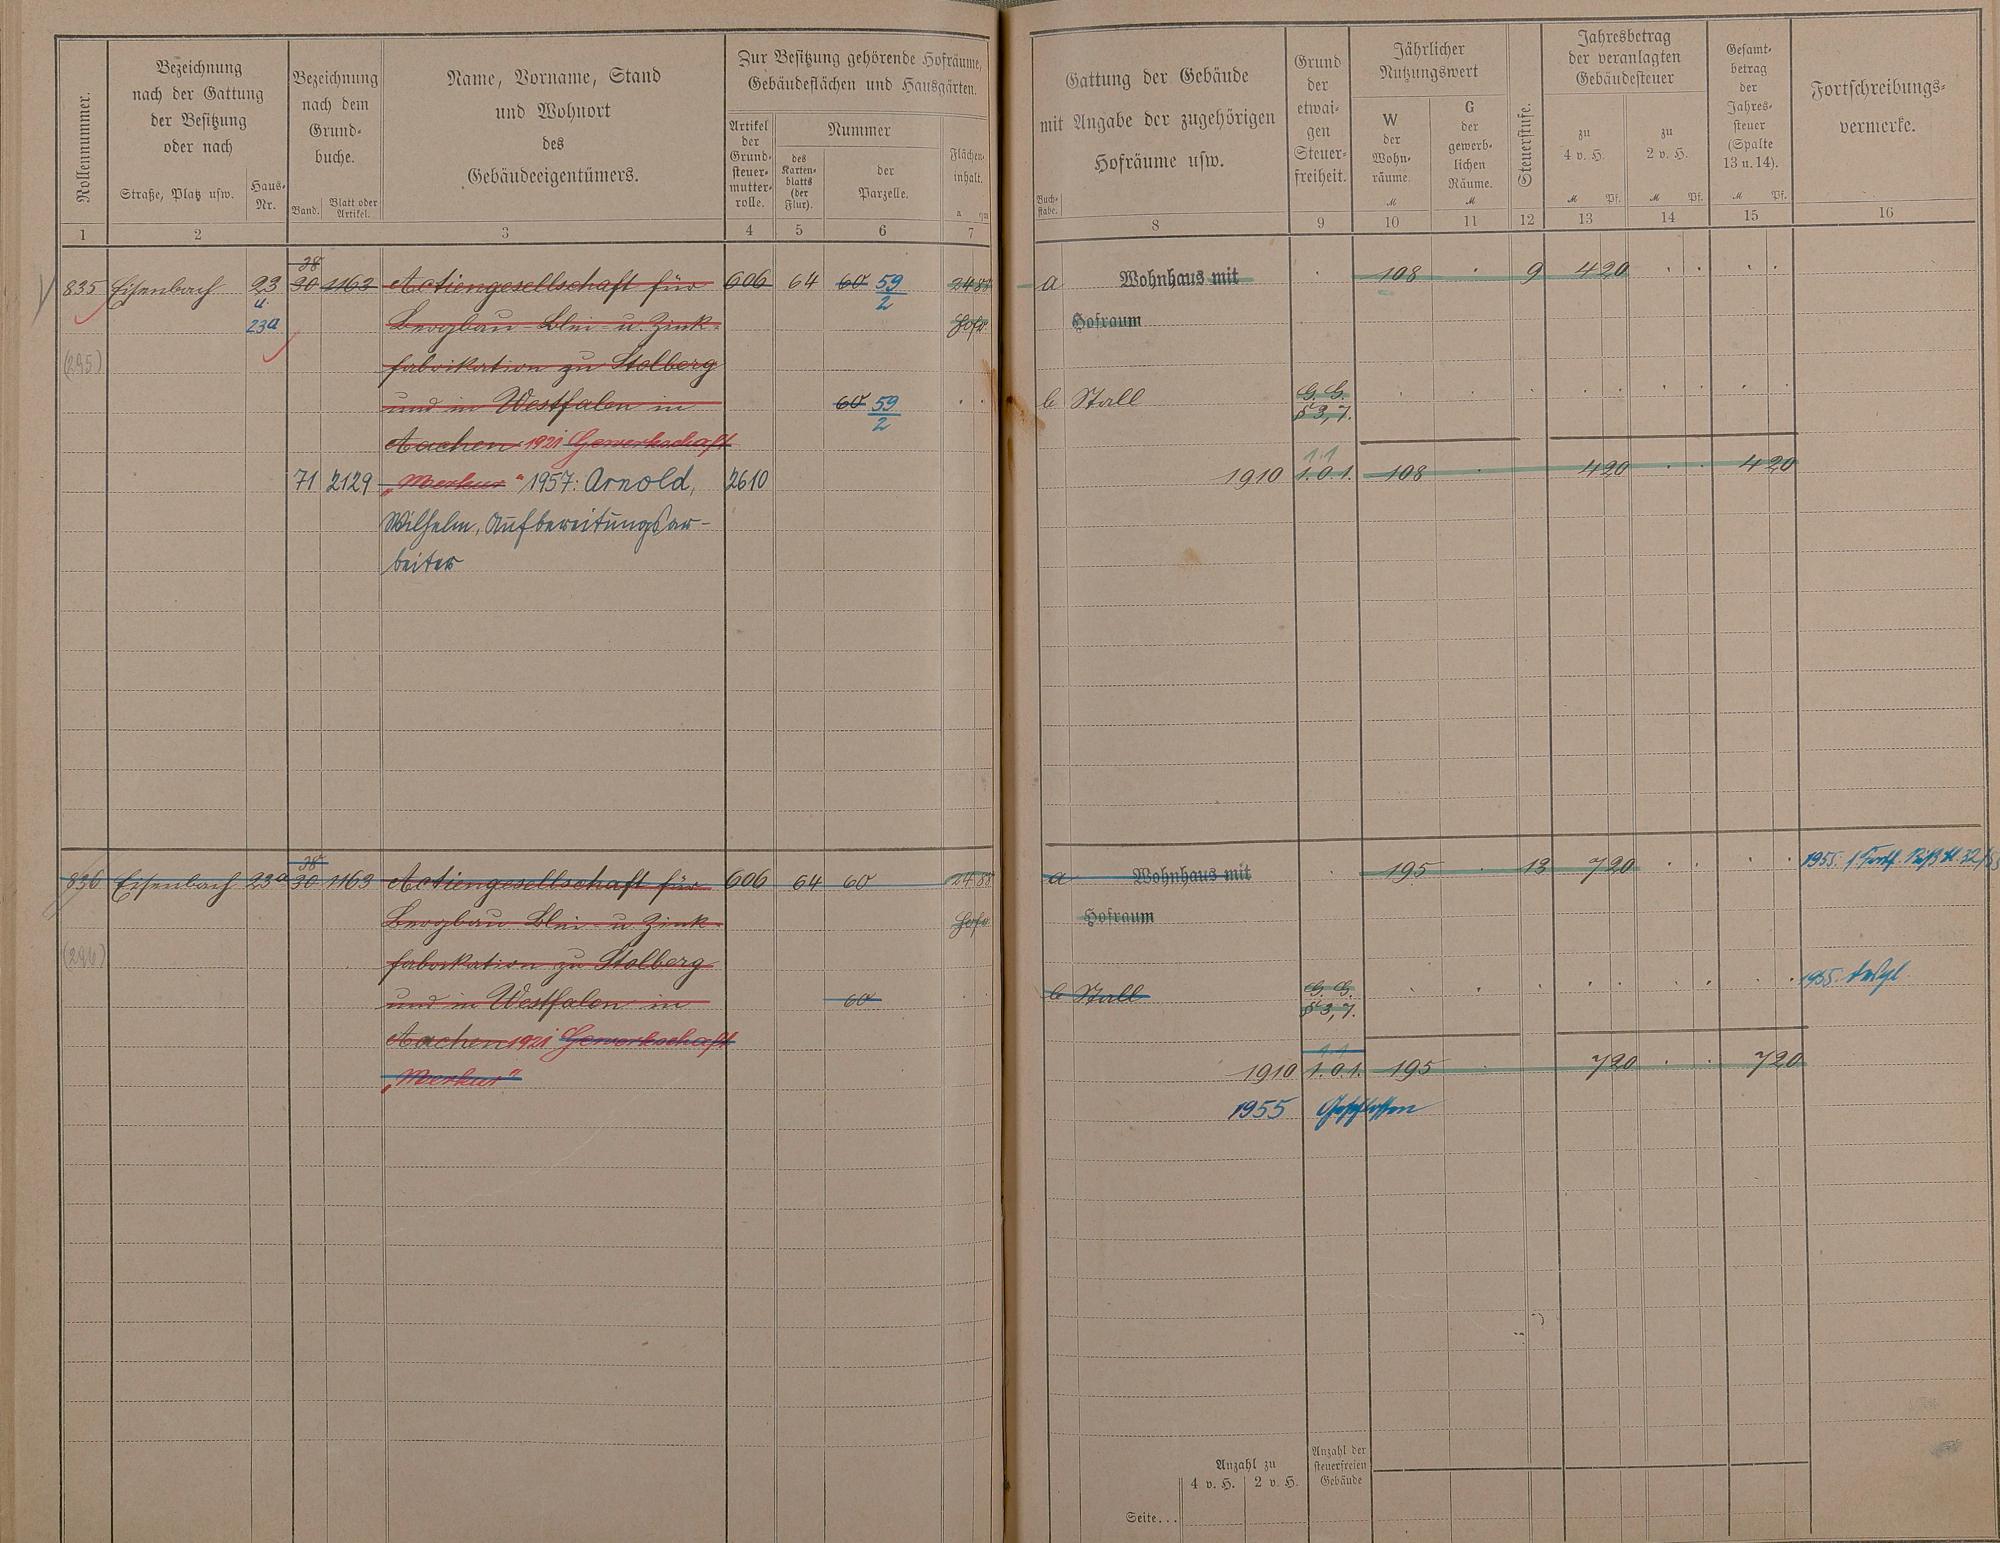 Rollennummer.
Bezeichnung
nach der Gattung
der Besitzung
oder nach
Straße, Platz usw.
Haus-
Nr.
Bezeichnung
nach dem
Grund-
buche.
Band.
Blatt oder
Artikel.
Name, Vorname, Stand
und Wohnort
des
Gebäudeeigentümers.
Zur Besitzung gehörende Hofräume,
Gebäudeflächen und Hausgärten.
Artikel
der
Grund-
steuer-
mutter-
rolle.
Nummer
des
Karten-
blatts
(der
Flur).
der
Parzelle.
Flächen-
inhalt.
a qm
1 2 3 4 5 6 7
38
835 Eisenbach 23 30 1163 Actiengesellschaft für 606 64 60 59/2 24 88
u.
23a Bergbau- Blei- u. Zink- Hofr.
(295) fabrikation zu Stolberg
und in Westfalen in 60 59/2
Aachen 1921 Gewerkschaft
71 2129 „Merkur“ 1957: Arnold, 2610
Wilhelm, Aufbereitungsar-
beiter
38
836 Eisenbach 23a 30 1163 Actiengesellschaft für 606 64 60 24 88
Bergbau Blei- u. Zink- Hofr.
(296) fabrikation zu Stolberg
und in Westfalen in 60
Aachen 1921 Gewerkschaft
„Merkur“
Gattung der Gebäude
mit Angabe der zugehörigen
Hofräume usw.
Buch-
stabe.
Grund
der
etwai-
gen
Steuer-
freiheit.
Jährlicher
Nutzungswert
W
der
Wohn-
räume.
M
G
der
gewerb-
lichen
Räume.
M
Steuerstufe.
Jahresbetrag
der veranlagten
Gebäudesteuer
zu
4 v. H.
M Pf.
zu
2 v. H.
M Pf.
Gesamt-
betrag
der
Jahres-
steuer
(Spalte
13 u. 14).
M Pf.
Fortschreibungs-
vermerke.
8 9 10 11 12 13 14 15 16
a Wohnhaus mit 108 9 4 20
Hofraum
b Stall G. G.
§ 3, 7.
1.1
1910 1.0.1. 108 4 20 4 20
a Wohnhaus mit 195 13 7 20 1955:
Hofraum
b Stall G. G. 1955.
§ 3, 7.
1.1
1910 1.0.1. 195 7 20 7 20
1955 Geschlossen
Anzahl zu
4 v. H. 2 v. H.
Anzahl der
steuerfreien
Gebäude
Seite...